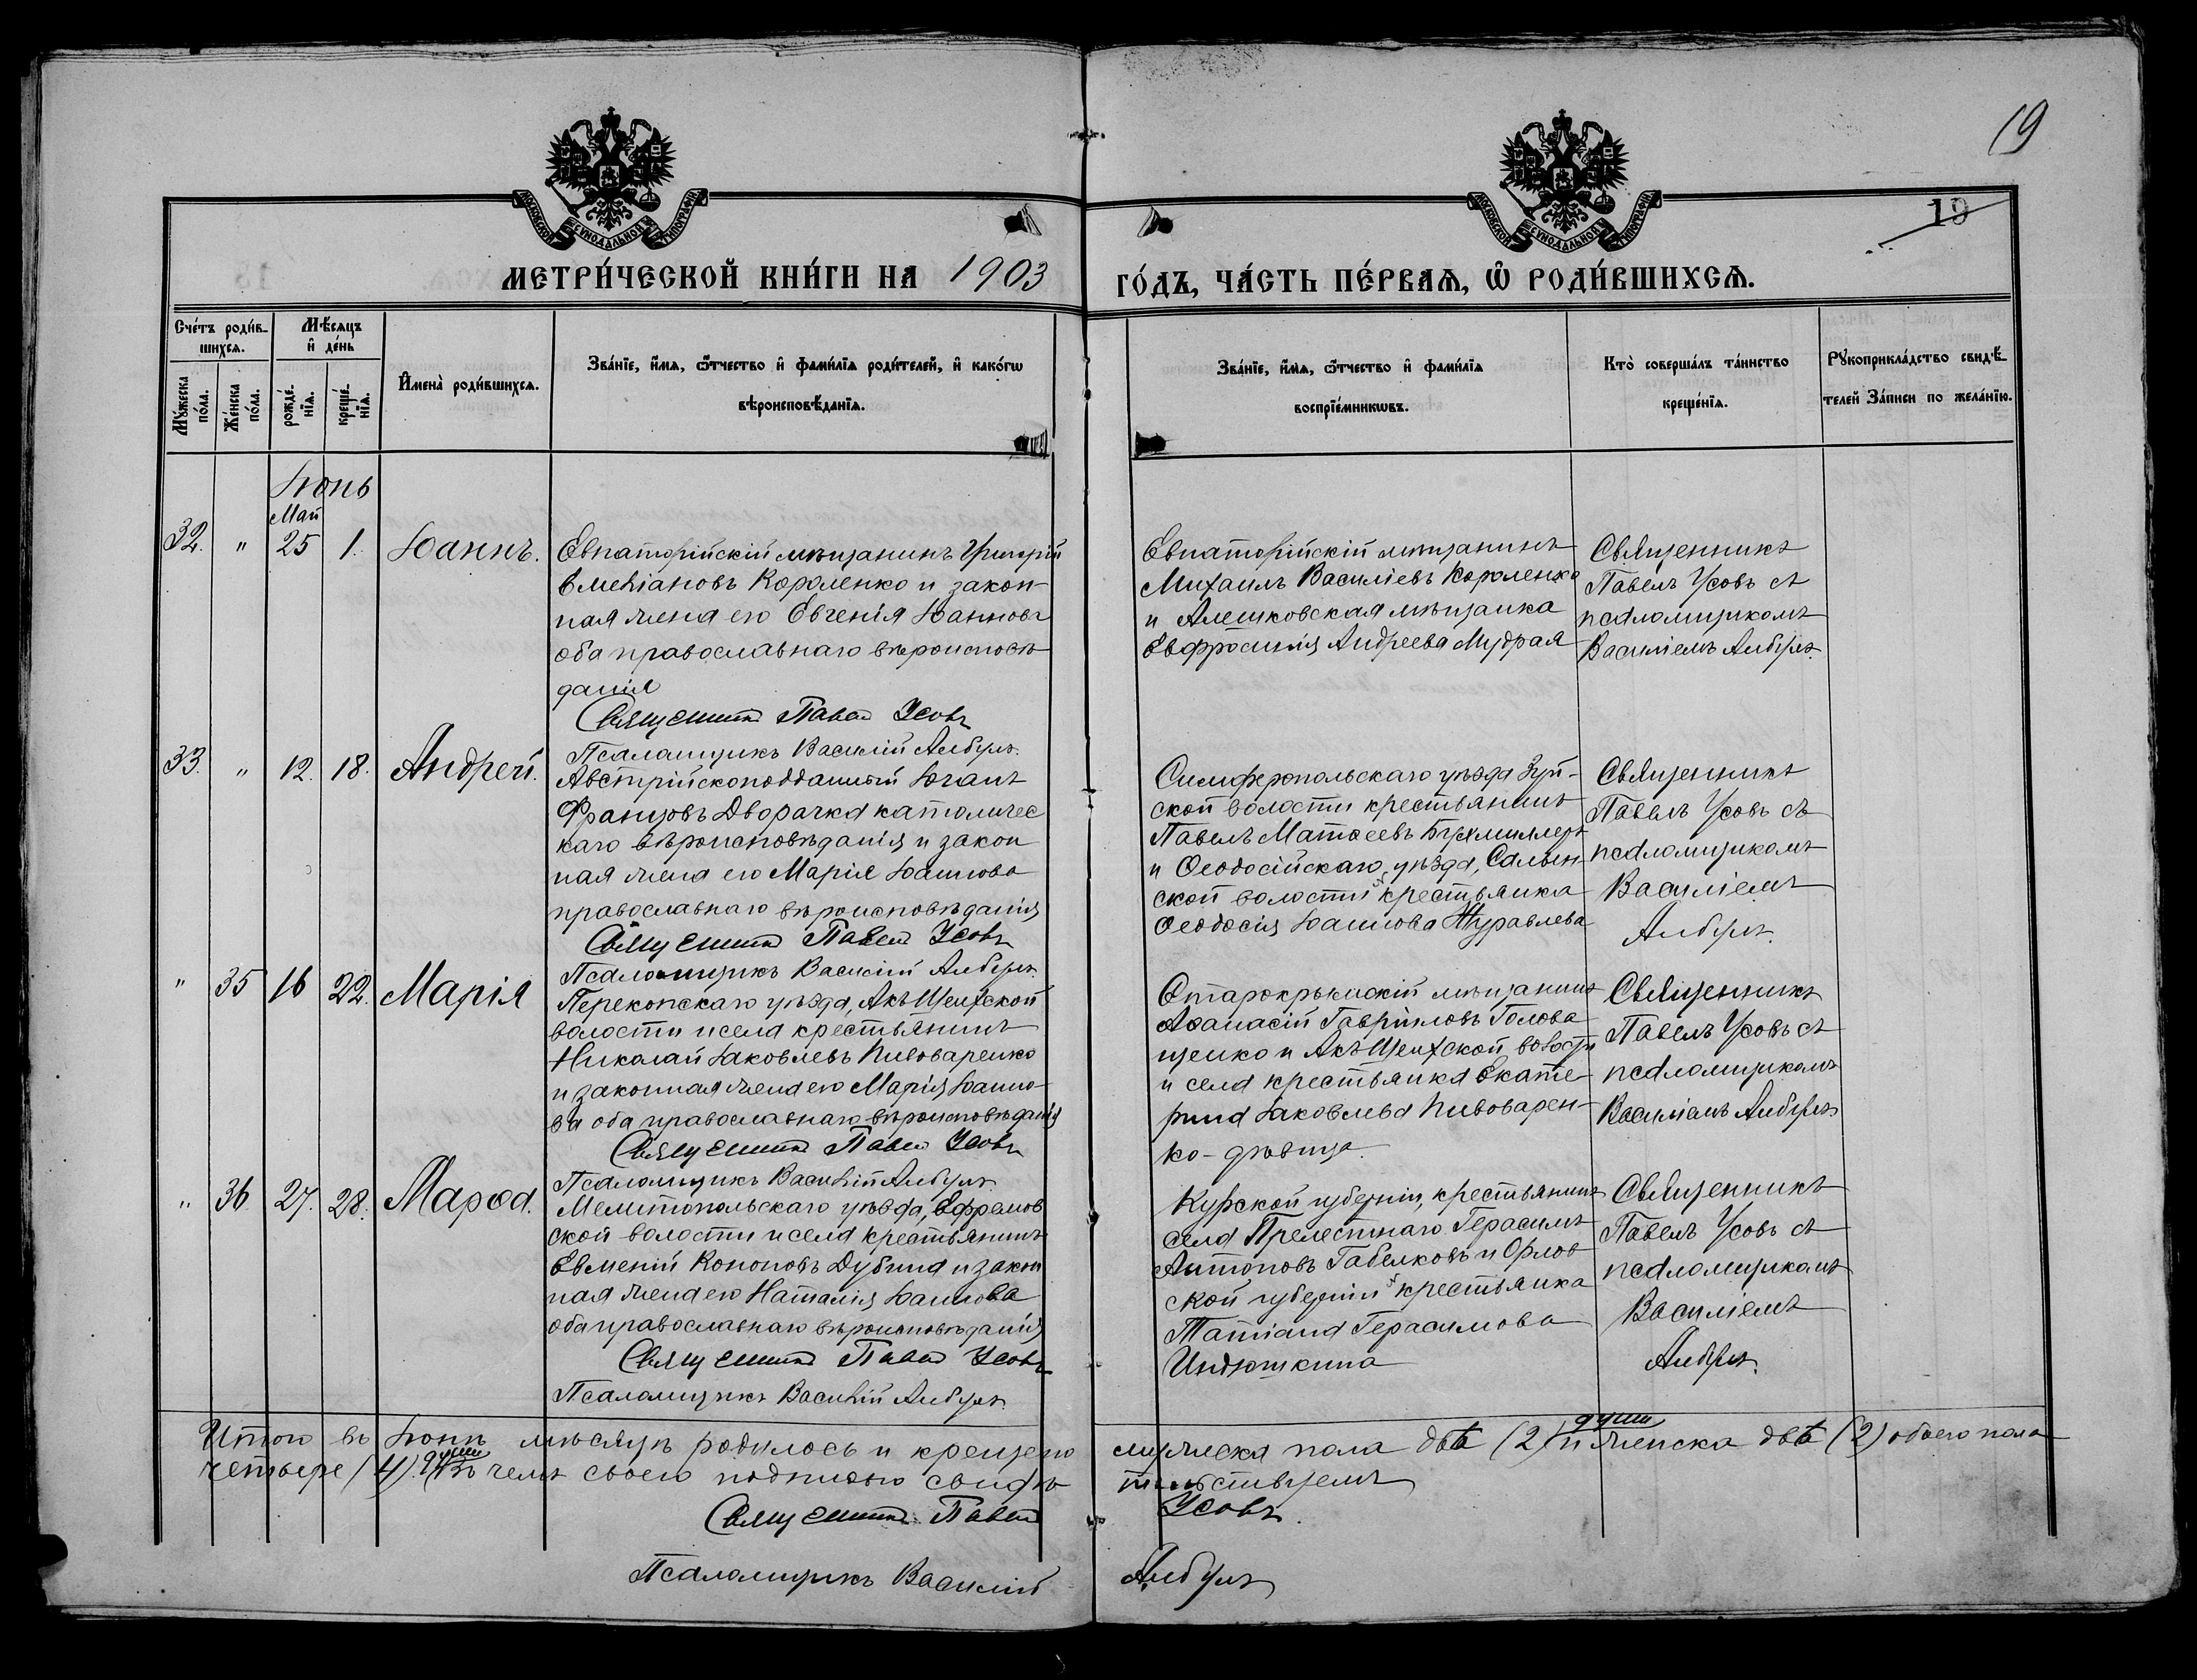 19
19
МОСКОВСКОЙ СѴНОДАЛЬНОЙ ТИПОГРАФІИ
МОСКОВСКОЙ СѴНОДАЛЬНОЙ ТИПОГРАФІИ
МЕТРИ́ЧЕСКОЙ КНИ́ГИ НА 1903
ГО́ДЪ, ЧА́СТЬ ПЕ́РВАѦ, Ѡ҆ РОДИ́ВШИХСѦ.
Сче́тъ роди́в-
шихсѧ.
Мѣ́сѧцъ
и҆ де́нь
Мꙋ́жеска
по́ла.
Же́нска
по́ла.
рожде́-
нїѧ.
креще́-
нїѧ.
И҆мена̀ роди́вшихсѧ.
Зва́нїе, и҆́мѧ, ѻ҆́тчество и҆ фами́лїѧ роди́телей, и҆ како́гѡ
вѣроисповѣ́данїѧ.
Зва́нїе, и҆́мѧ, ѻ҆́тчество и҆ фами́лїѧ
воспрїе́мникѡвъ.
Кто̀ соверша́лъ та́инство
креще́нїѧ.
Рꙋкоприкла́дство свидѣ́-
телей За́писи по жела́нїю.
Іюнь
Май
32. " 25 1. Іоаннъ.
Евпаторійскій мѣщанинъ Григорій
Емеліановъ Короленко и закон-
ная жена его Евгенія Іоаннова
оба православнаго вѣроисповѣ-
данія
Священникъ Павелъ Усовъ
Псаломщикъ Василій
Евпаторійскій мѣщанинъ
Михаилъ Василіевъ Короленко
и Алешковская мѣщанка
Евфросинія Андреева Мудрая
Священникъ
Павелъ Усовъ съ
псаломщикомъ
Василіемъ
33. " 12. 18. Андрей.
Австрійскоподданный Іоганъ
Францовъ Дворачка католичес
каго вѣроисповѣданія и закон
ная жена его Марія Іоаннова
православнаго вѣроисповѣданія
Священникъ Павелъ Усовъ
Псаломщикъ Василій
Симферопольскаго уѣзда Зуй-
ской волости крестьянинъ
Павелъ Матѳеевъ Бухмиллеръ
и Ѳеодосійскаго уѣзда,
ской волости крестьянка
Ѳеодосія Іоаннова Журавлева
Священникъ
Павелъ Усовъ съ
псаломщикомъ
Василіемъ
" 35 16 22. Марія
Перекопскаго уѣзда, Акъ-Шеихской
волости и села крестьянинъ
Николай Іаковлевъ Пивоваренко
и законная жена его Марія Іанно-
ва оба православнаго вѣроисповѣданія
Священникъ Павелъ Усовъ
Псаломщикъ Василій
Старокрымскій мѣщанинъ
Аѳанасій Гавриловъ Голова
щенко и Акъ-Шеихской волости
и села крестьянка Екате-
рина Іаковлева Пивоварен-
ко - дѣвица.
Священникъ
Павелъ Усовъ съ
псаломщикомъ
Василіемъ
" 36. 27. 28. Марѳа.
Мелитопольскаго уѣзда, Ефремов
ской волости и села крестьянинъ
Евменій Кононовъ Дубина и закон
ная жена его Наталія Іаннова
оба православнаго вѣроисповѣданія
Священникъ Павелъ Усовъ
Псаломщикъ Василій
Курской губерніи, крестьянинъ
села Прелестнаго Герасимъ
Антоновъ Габелковъ и Орлов
ской губерніи крестьянка
Татіана Герасимова
Индюшкина
Священникъ
Павелъ Усовъ съ
псаломщикомъ
Василіемъ
Итого въ Іюнѣ мѣсяцѣ родилось и крещено мужеска пола двѣ (2) души и женска двѣ (2) обоего пола
четыре (4) души. Въ чемъ своею подписью свидѣтельствуемъ
Священникъ Павелъ Усовъ.
Псаломщикъ Василій